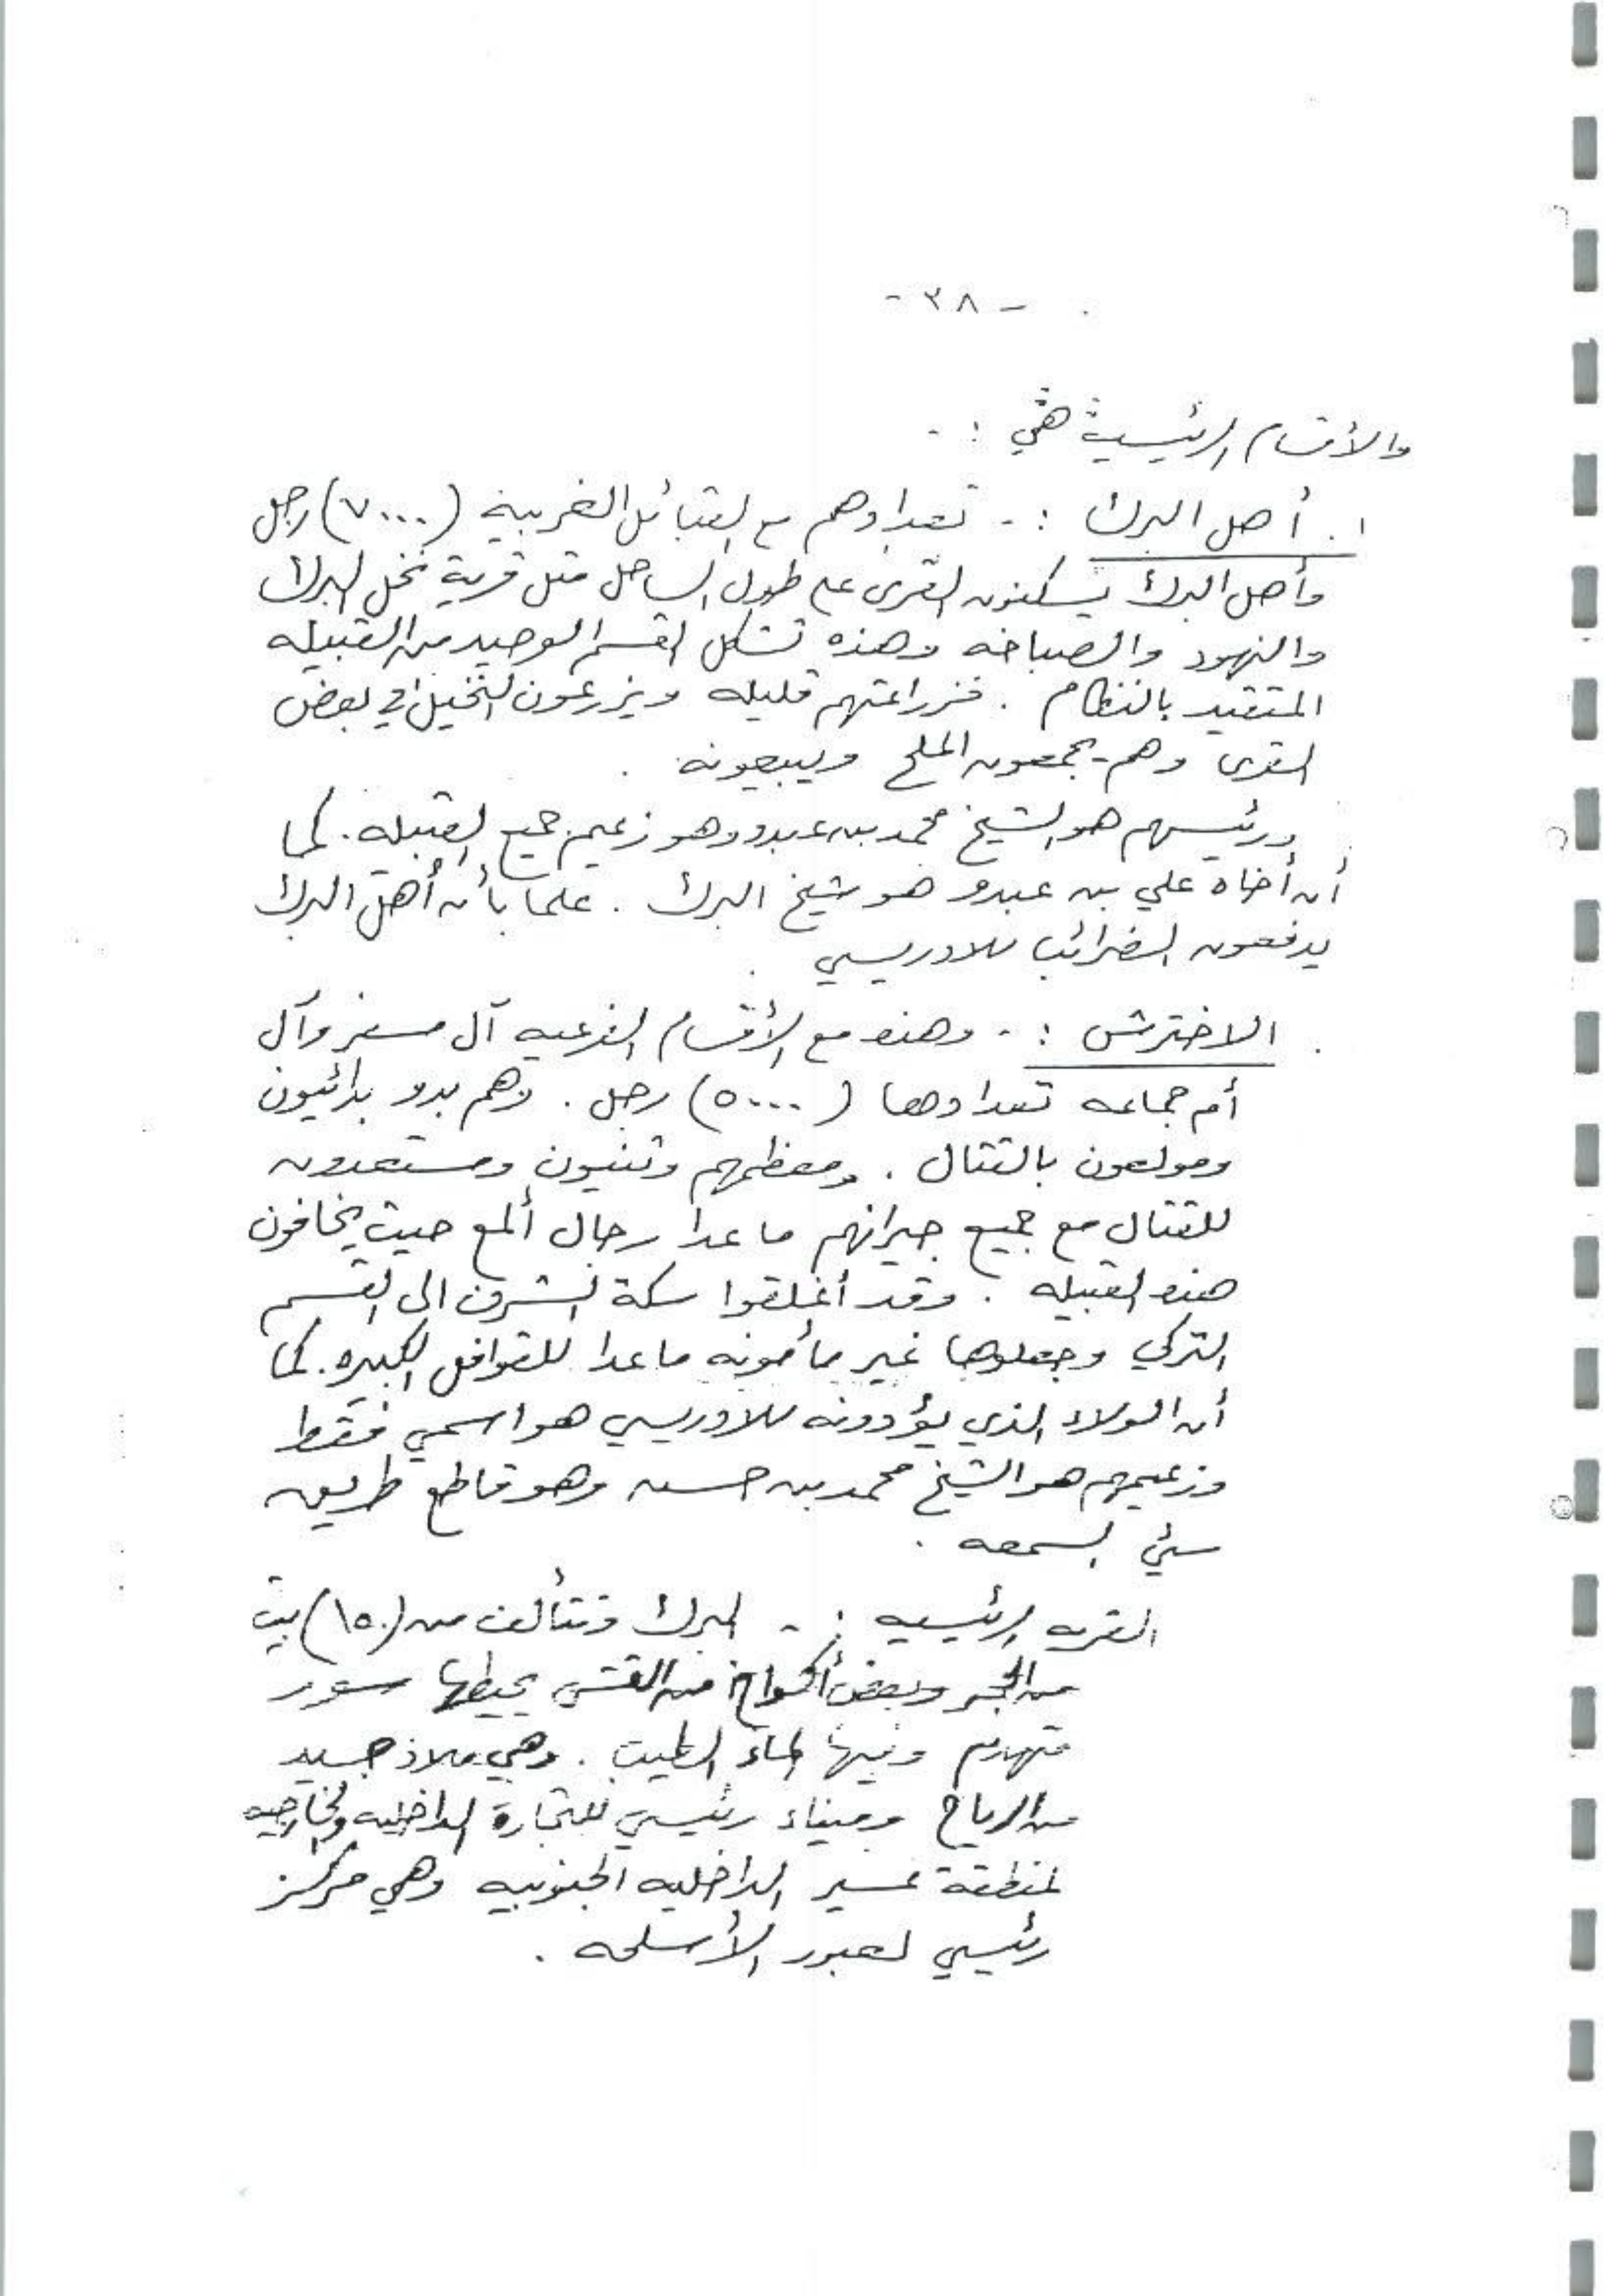 - ٣٨ -
والأقسام الرئيسية هي :-
١. أهل البرك :- تعدادهم مع القبائل الغربية (٧٠٠٠) رجل
وأهل البرك يسكنون القرى على طول الساحل مثل قرية نخل البرك
والنهود والصباخه وهذه تشكل القسم الوحيد من القبيله
المتقيد بالنظام . فزراعتهم قليله ويزرعون النخيل في بعض
القرى وهم يجمعون الملح ويبيعونه .
ورئيسهم هو الشيخ محمد بن عبدو وهو زعيم جميع القبيله . كما
أن أخاه علي بن عبدو هو شيخ البرك . علما بأن أهل البرك
يدفعون الضرائب للادريسي .
. الاخترش :- وهذه مع الأقسام الفرعيه آل مسفر وآل
أم جماعه تعدادها (٥٠٠٠) رجل . وهم بدو بدائيون
ومولعون بالقتال . ومعظمهم وثنيون ومستعدون
للقتال مع جميع جيرانهم ما عدا رجال ألمع حيث يخافون
هذه القبيله . وقد أغلقوا سكة الشرق الى القسم
التركي وجعلوها غير مأمونه ما عدا للقوافل الكبيره . كما
أن الولاء الذي يؤدونه للادريسي هو اسمي فقط
وزعيمهم هو الشيخ محمد بن حسن وهو قاطع طريق
سئي السمعه .
القريه الرئيسيه :- البرك وتتألف من (١٥٠) بيت
من الحجر وبعض أكواخ من القش يحيطها سور
متهدم وفيها الماء الطيب . وهي ملاذ جيد
من الرياح وميناء رئيسي للتجارة الداخليه والخارجيه
لمنطقة عسير الداخليه الجنوبيه وهي مركز
رئيسي لعبور الأسلحه .